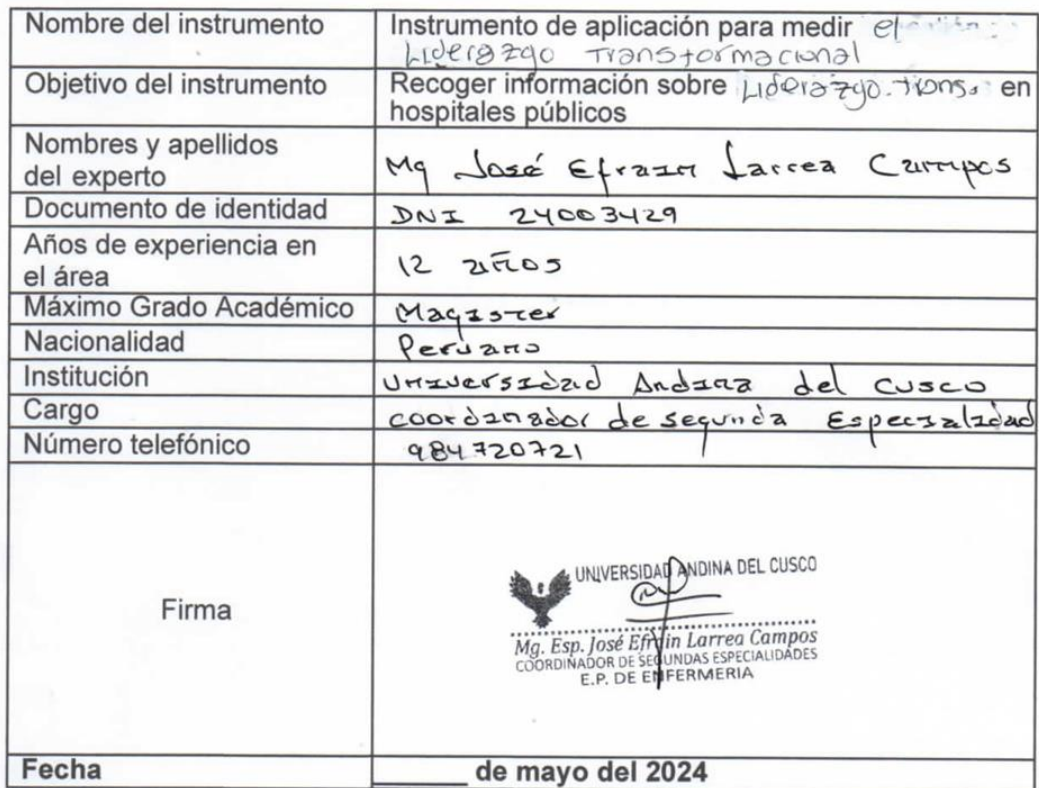 Nombre del instrumento
Instrumento de aplicación para medir el
Liderazgo Transformacional
Objetivo del instrumento
Recoger información sobre Liderazgo. Trans. en
hospitales públicos
Nombres y apellidos
del experto
Mg José Efrain Larrea Campos
Documento de identidad
DNI 24003429
Años de experiencia en
el área
12 años
Máximo Grado Académico
Magister
Nacionalidad
Peruano
Institución
Universidad Andina del Cusco
Cargo
Coordinador de segunda Especialidad
Número telefónico
984720721
Firma
UNIVERSIDAD ANDINA DEL CUSCO
Mg. Esp. José Efraín Larrea Campos
COORDINADOR DE SEGUNDAS ESPECIALIDADES
E.P. DE ENFERMERIA
Fecha
______ de mayo del 2024